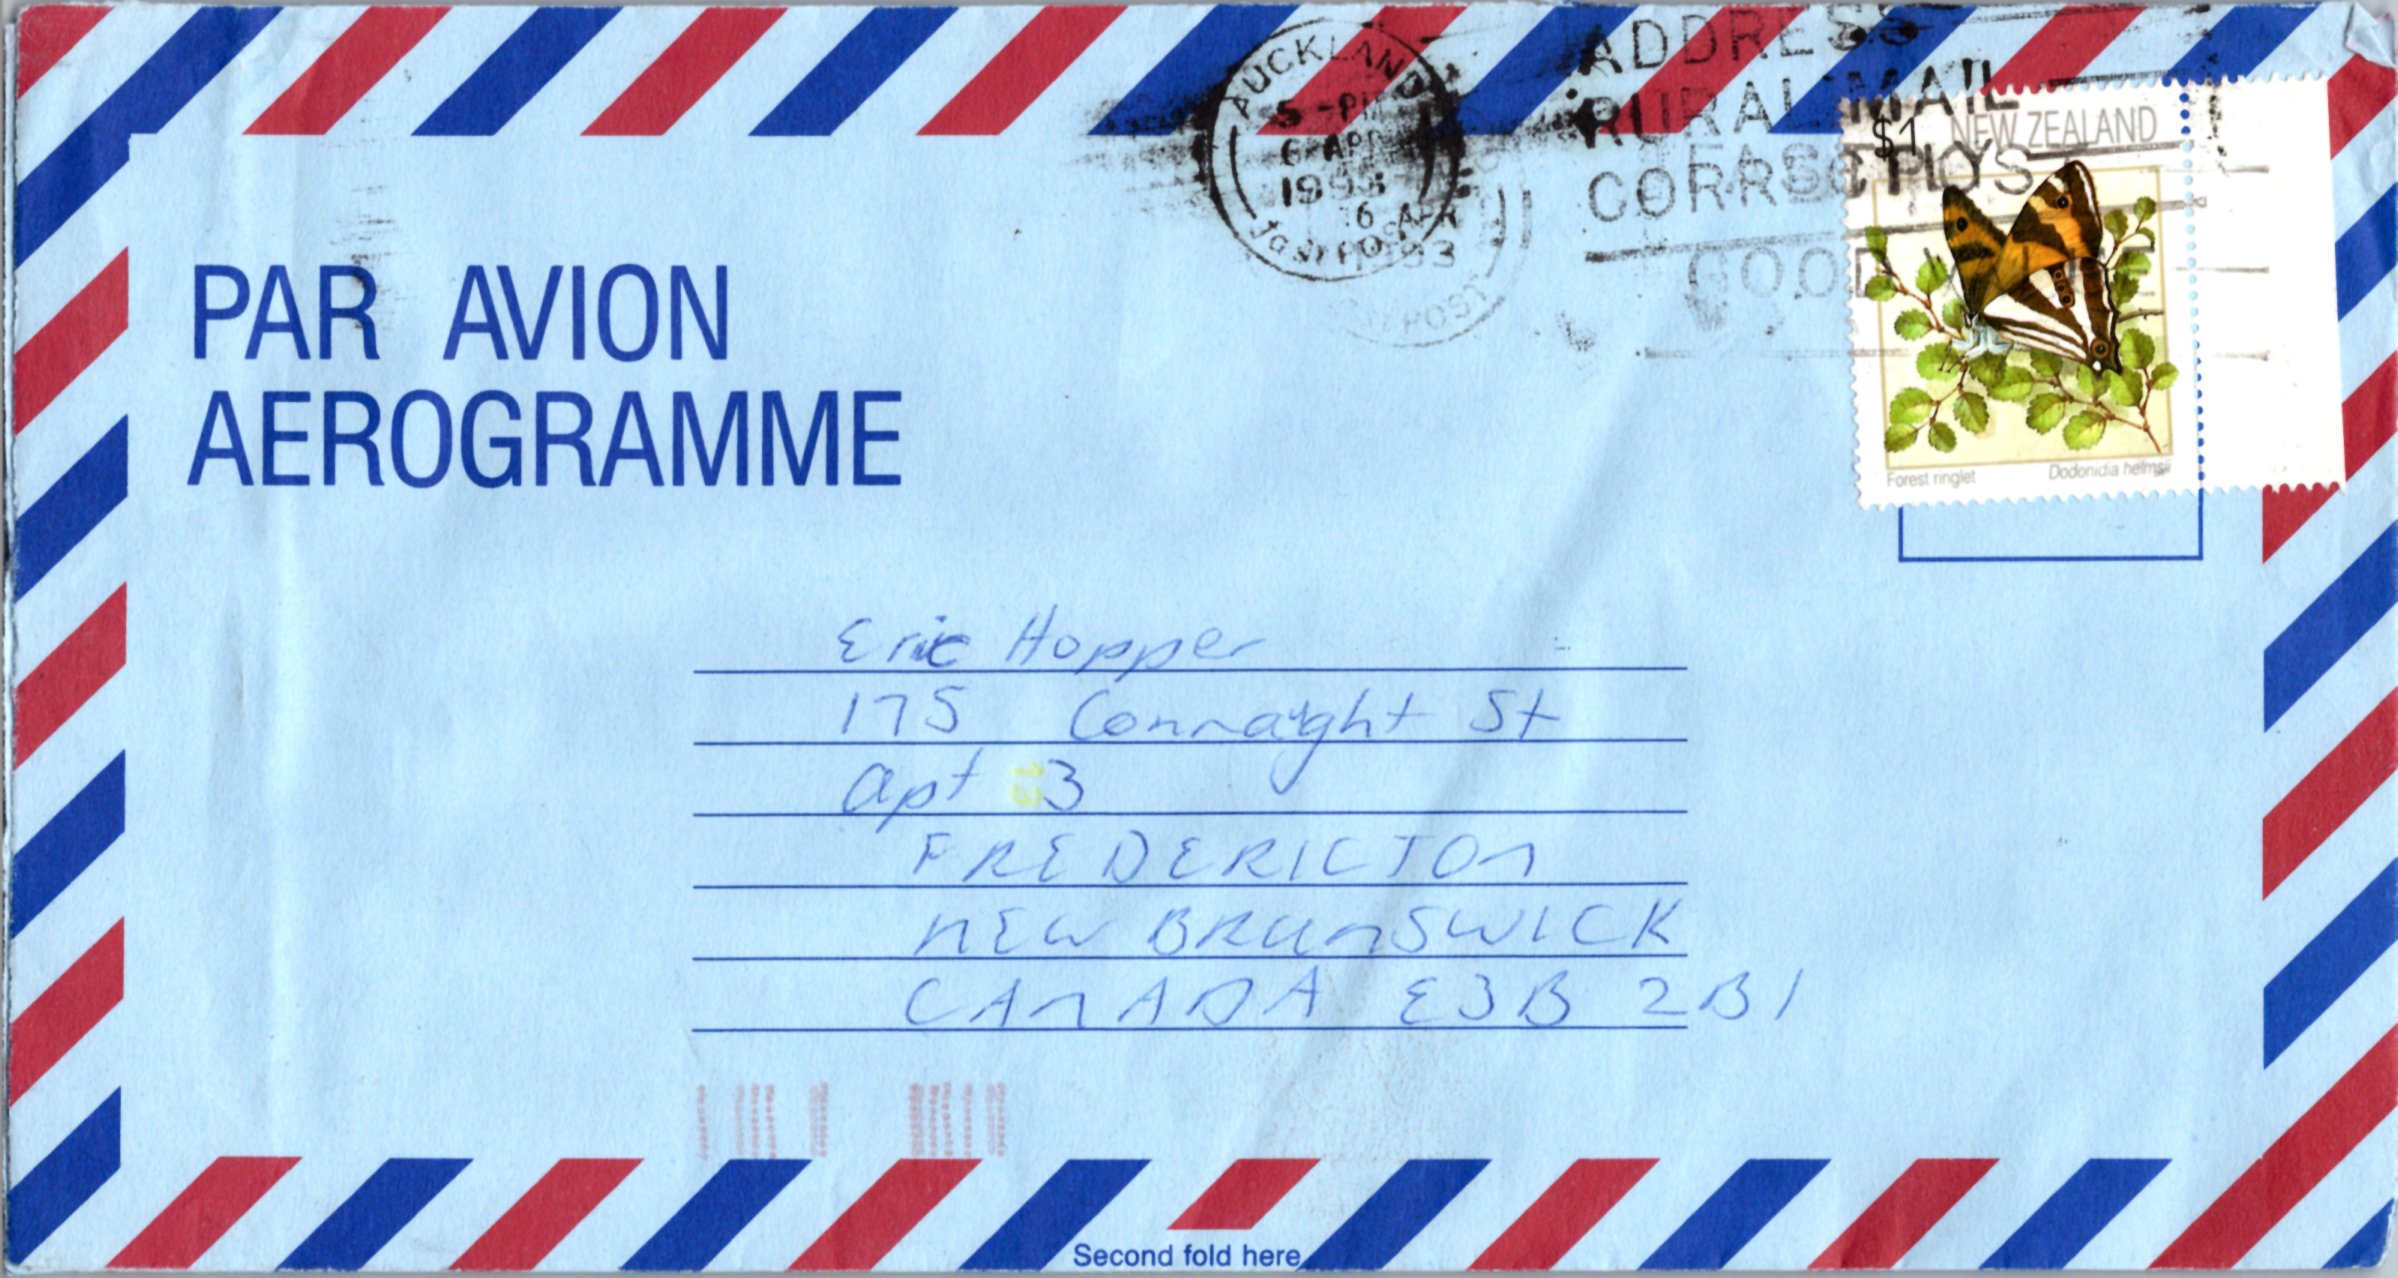 PAR AVION
AEROGRAMME
AUCKLAND
5 - PM
6 APR
1993
6 APR
93
FASTPOST
ADDRESS
RURAL MAIL
GOOD
$1 NEW ZEALAND
Forest ringlet Dodonidia helmsii
Eric Hopper
175 Connaught St
apt 3
13
FREDERICTON
NEW BRUNSWICK
CANADA E3B 2B1
Second fold here